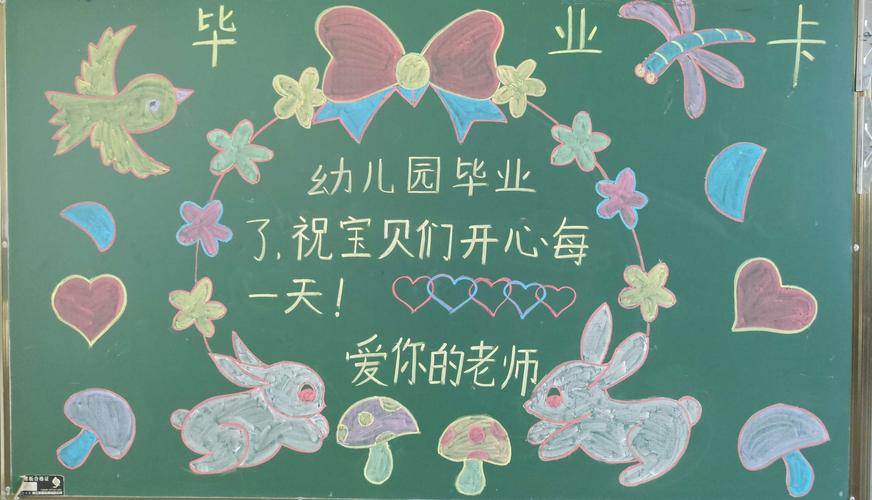 毕 业 卡
幼儿园毕业
了,祝宝贝们开心每
一天!
爱你的老师